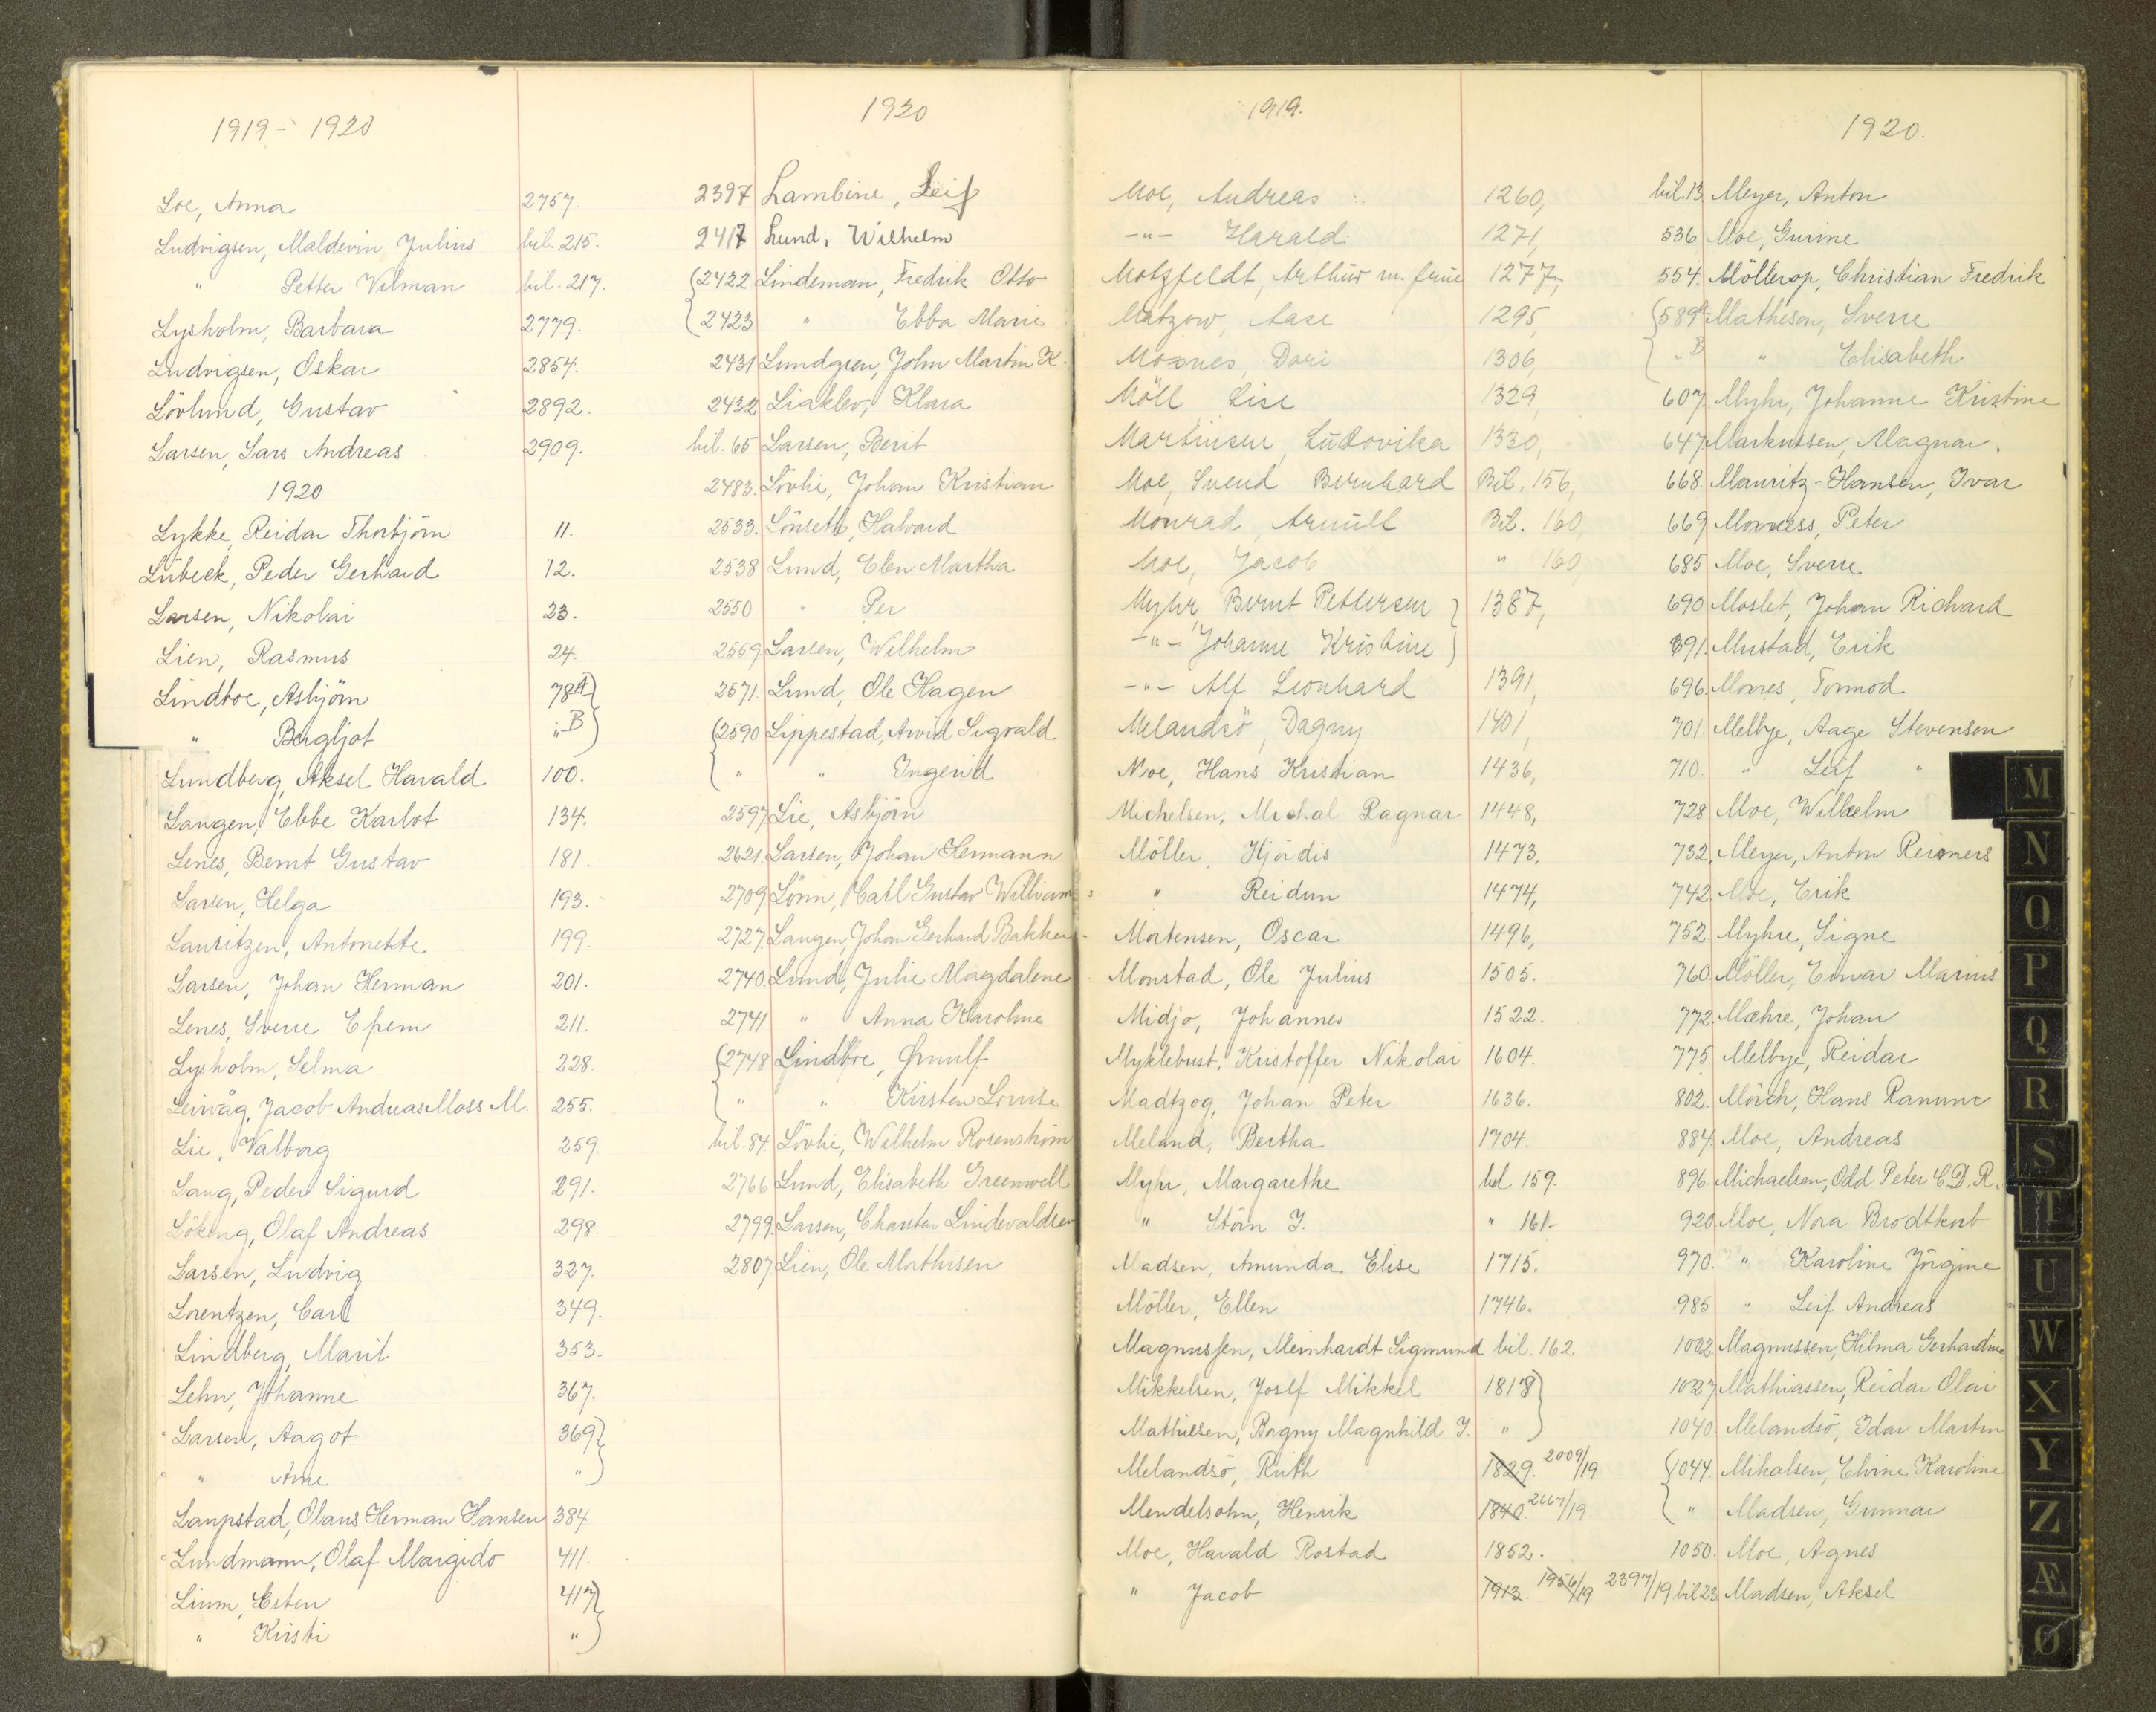 1919 - 1920
Loe, Anna 2757.
Ludvigsen, Maldevin Julius bil. 215.
" Petter Vilman bil. 217.
Lysholm, Barbara 2779.
Ludvigsen, Oskar 2854.
Lövlund, Gustav 2892.
Larsen, Lars Andreas 2909.
1920
Lykke, Reidar Thorbjörn 11.
Lübeck, Peder Gerhard 12.
Larsen, Nikolai 23.
Lien, Rasmus 24.
Lindboe, Asbjörn 78A
" Bergljot " B
Lundberg, Aksel Harald 100.
Langen, Ebbe Karlot 134.
Lenes, Bernt Gustav 181.
Larsen, Helga 193.
Lauritzen, Antonette 199.
Larsen, Johan Herman 201.
Lenes, Sverre Efrem 211.
Lysholm, Selma 228.
Leirvåg, Jacob Andreas Moss M. 255.
Lie, Valborg 259.
Lang, Peder Sigurd 291.
Löking, Olaf Andreas 298.
Larsen, Ludvig 327.
Lorentzen, Carl 349.
Lindberg, Marit 353.
Lehn, Johanne 367.
Larsen, Aagot 369
" Arne "
Laupstad, Olaus Herman Hansen 384
Lundmann, Olaf Margido 411.
Lium, Esten 417
" Kirsti "
1920
2397 Lambine, Leif
2417 Lund, Wilhelm
2422 Lindeman, Fredrik Otto
2423 " Ebba Marie
2431 Lundgren, John Martin K.
2432 Liaklev, Klara
bil. 65 Larsen, Berit
2483. Lövli, Johan Kristian
2533. Lönseth, Halvard
2538 Lund, Elen Martha
2550 " Per
2559 Larsen, Wilhelm
2571. Lund, Ole Hagen
2590 Lippestad, Arvid Sigvald
" " Ingerid
2597 Lie, Asbjörn
2621 Larsen, Johan Hermann
2709 Lönn, Carl Gustav William
2727 Langen, Johan Gerhard Bakken
2740. Lund, Julie Magdalene
2741 " Anna Karoline
2748 Lindboe, Ørnulf
" " Kirsten Louise
bil. 84. Lövli, Wilhelm Rosenström
2766 Lund, Elisabeth Greenwell
2799. Larsen, Charsten Lindevaldsen
2807 Lien, Ole Mathisen
1919.
Moe, Andreas 1260,
-"- Harald 1271,
Motzfeldt, Arthur m. frue 1277,
Matzow, Aase 1295,
Moxnes, Dori 1306,
Möll Lise 1329,
Martinsen, Ludovika 1330,
Moe, Svend Bernhard Bil. 156,
Monrad, Arnult Bil. 160,
Moe, Jacob " 160,
Myhr, Bernt Pettersen 1387,
-"- Johanne Kristine
-"- Alf Leonhard 1391,
Melandsö, Dagny 1401,
Moe, Hans Kristian 1436,
Michelsen, Michal Ragnar 1448,
Möller, Hjördis 1473,
" Reidun 1474,
Mortensen, Oscar 1496,
Monstad, Ole Julius 1505.
Midjo, Johannes 1522.
Myklebust, Kristoffer Nikolai 1604.
Madtzog, Johan Peter 1636.
Meland, Bertha 1704.
Myhr, Margarethe bil. 159.
" Störn J. " 161.
Madsen, Amunda Elise 1715.
Möller, Ellen 1746.
Magnussen, Meinhardt Sigmund bil. 162
Mikkelsen, Josef Mikkel 1818
Mathiesen, Bagny Magnhild J. "
Melandsö, Ruth 1829. 2009/19
Mendelsohn, Henrik 1840. 2667/19
Moe, Harald Rostad 1852.
" Jacob 1913. 1956/19 2397/19
1920.
bil. 13 Meyer, Anton
536 Moe, Gurine
554. Möllerop, Christian Fredrik
589A Matheson, Sverre
" B " Elisabeth
607 Myhr, Johanne Kristine
647 Markussen, Magnar.
668. Mauritz-Hansen, Ivar
669 Morness, Peter
685 Moe, Sverre
690 Moslet, Johan Richard
691. Mustad, Erik
696 Mornes, Tormod
701. Melbye, Aage Stevensen
710. " Leif "
728 Moe, Wilhelm
732. Meyer, Anton Reimers
742 Moe, Erik
752 Myhre, Signe
760. Möller, Einar Marius
772. Mæhre, Johan
775. Melbye, Reidar
802. Mörch, Hans Ranum
884 Moe, Andreas
896. Michaelsen, Odd Peter C.D.R.
920 Moe, Nora Brodtkorb
970. " Karoline Jörgine
985 " Leif Andreas
1002 Magnussen, Hilma Gerhardine
1027 Mathiassen, Reidar Olai
1040 Melandsö, Idar Martin
1044. Mikalsen, Elvine Karoline
" Madsen, Gunnar
1050. Moe, Agnes
bil 23 Madsen, Aksel
M
N
O
P
Q
R
S
T
U
W
X
Y
Z
Æ
Ø